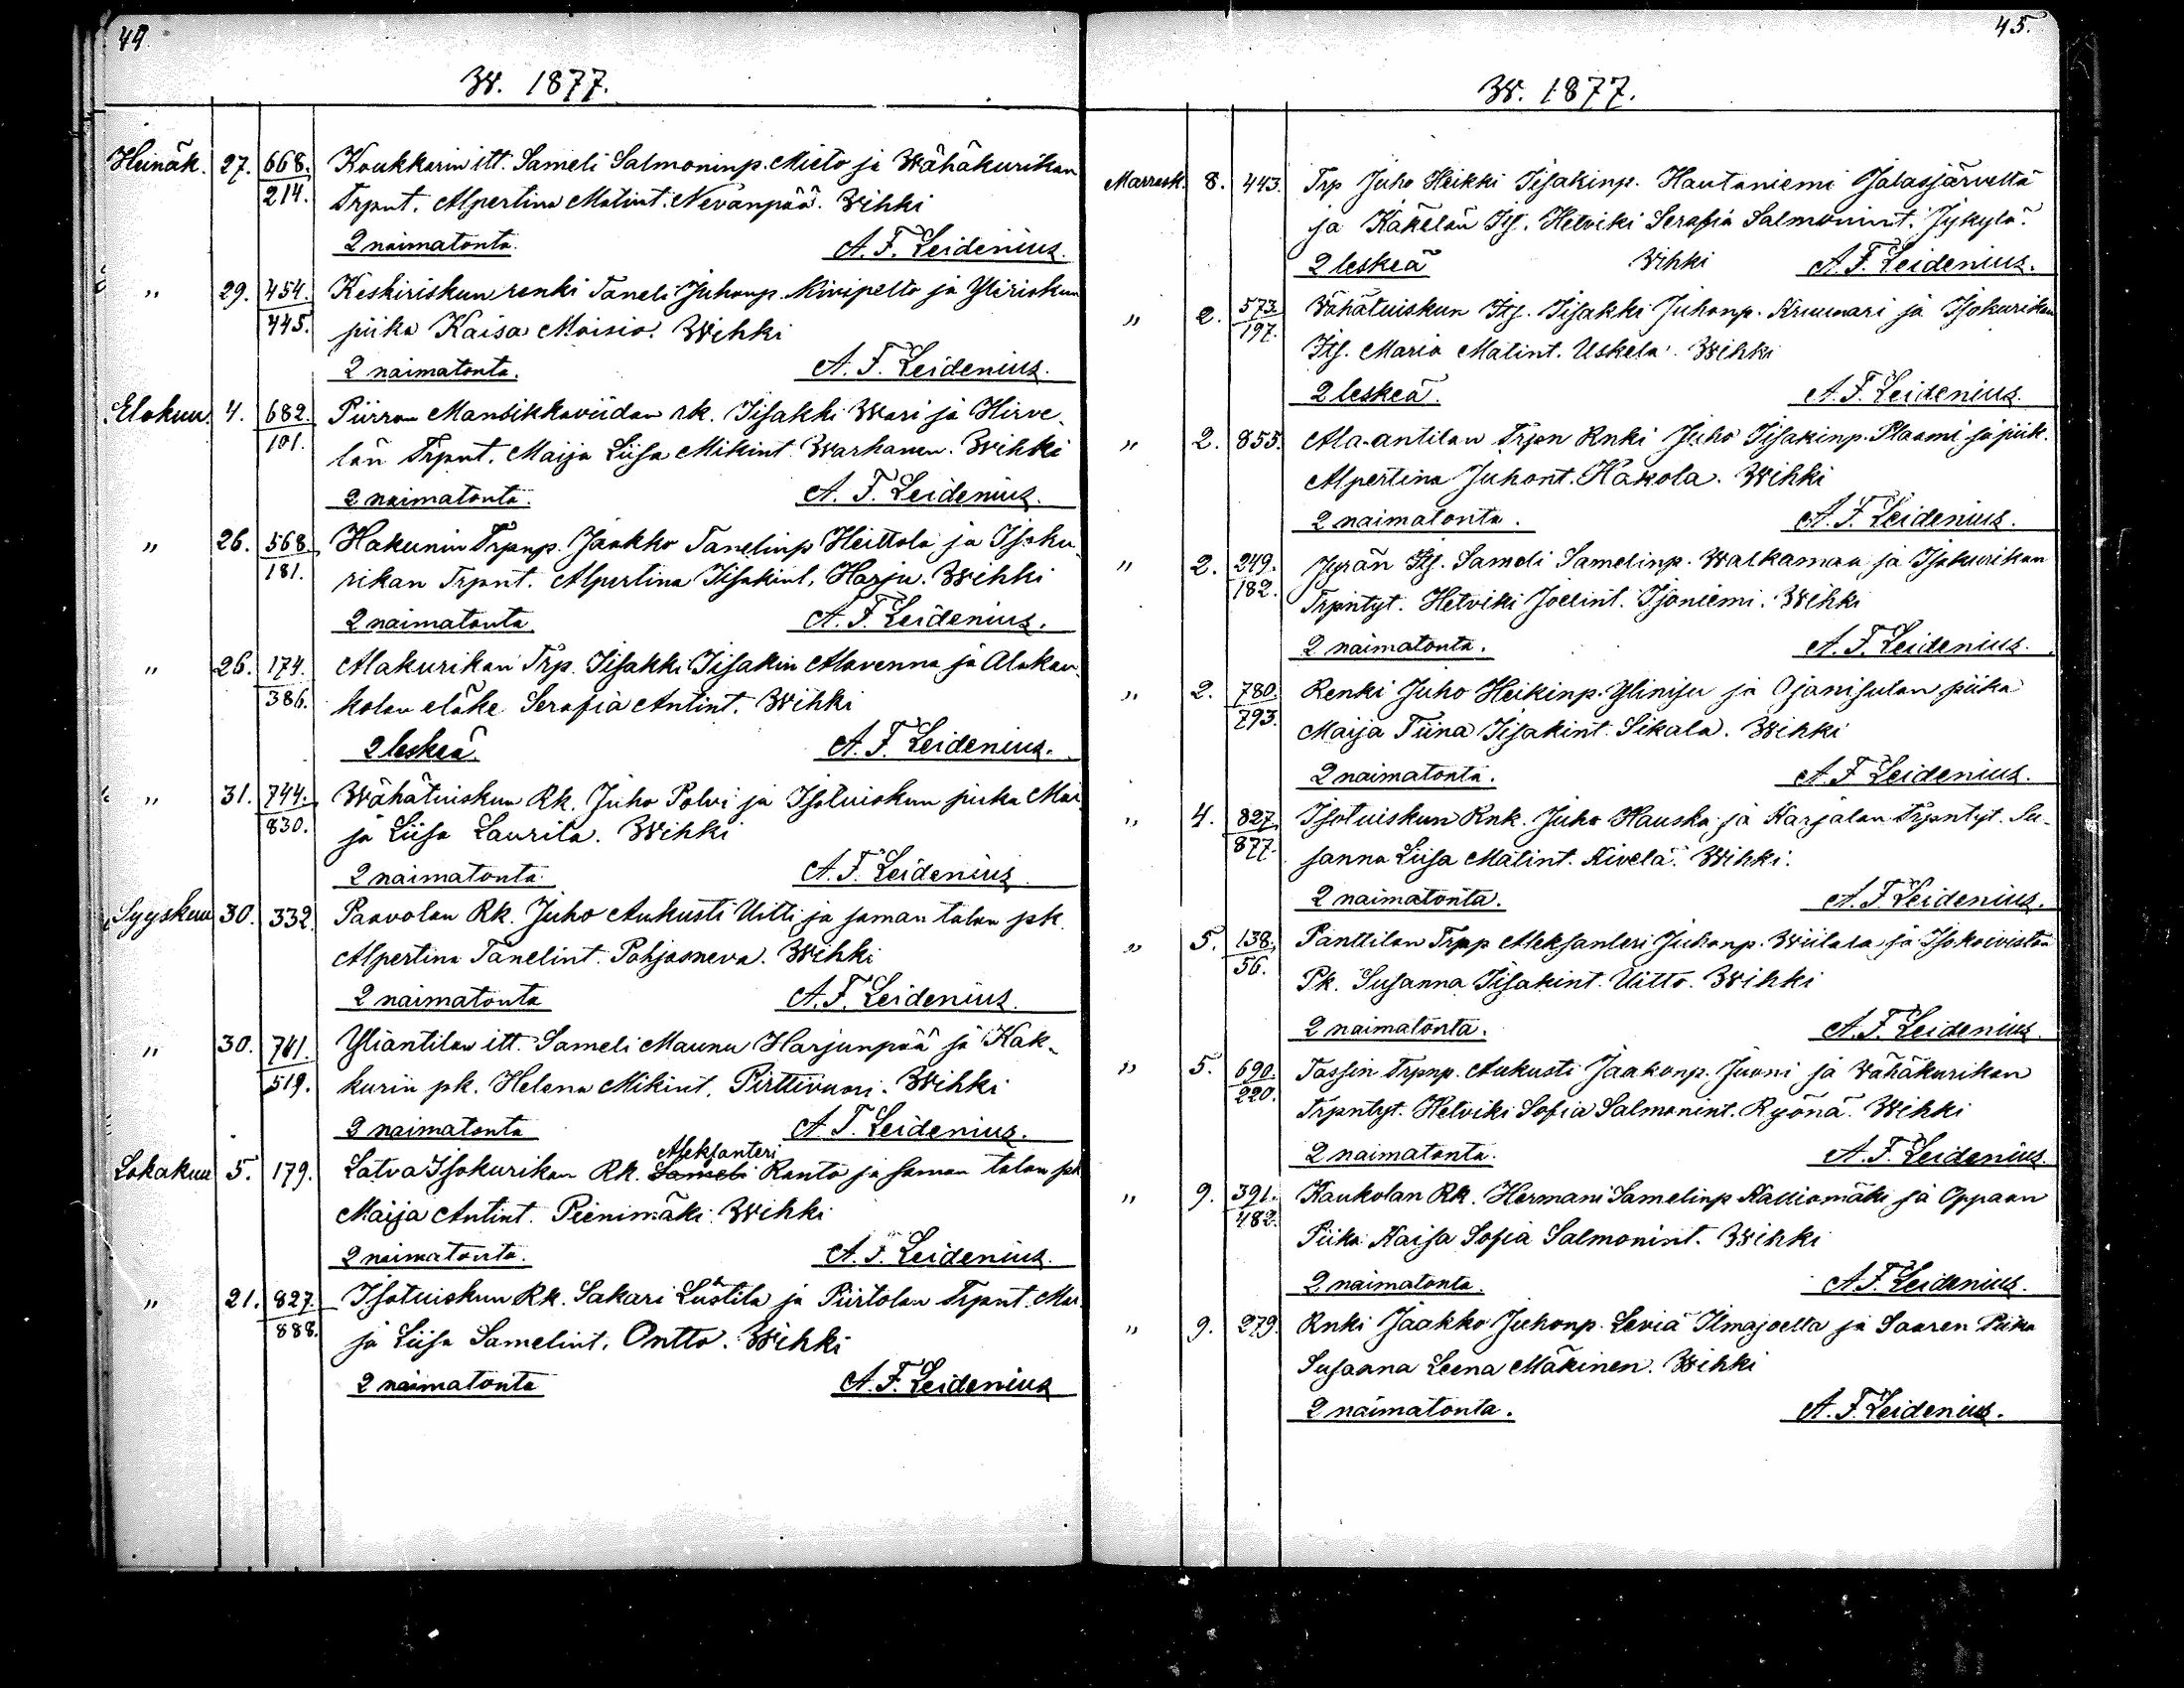 44.
W. 1877.
Heinäk. 27. 668. Koukkarin itt. Sameli Salmoninp. Mieto ja Wähäkurikan
214. Trpnt. Alpertina Matint. Nevanpää. Wihki
2 naimatonta. A. F. Leidenius.
" 29. 454. Keskiriskun renki Taneli Juhonp. Kivipelto ja Yliriskun
445. piika Kaisa Moisio. Wihki
2 naimatonta. A. F. Leidenius.
Elokuu 4. 682. Piirron Mansikkaviidan rk. Iisakki Wari ja Hirve-
101. län Trpnt. Maija Liisa Mikint. Warhanen. Wihki
2 naimatonta. A. F. Leidenius.
" 26. 568. Hakunin Trpnp. Jaakko Tanelinp Heittola ja Isoku-
181. rikan Trpnt. Alpertina Iisakint. Harju. Wihki
2 naimatonta. A. F. Leidenius.
" 26. 174. Alakurikan Trp. Iisakki Iisakin Alavenna ja Alakau-
386. kolan eläke Serafia Antint. Wihki
2 leskeä. A. F. Leidenius.
" 31. 744. Wähätuiskun Rk. Juho Polvi ja Isotuiskun piika Mai
830. ja Liisa Laurila. Wihki
2 naimatonta. A. F. Leidenius
Syyskuu 30. 332. Paavolan Rk. Juho Aukusti Uitti ja saman talon pk.
Alpertina Tanelint. Pohjasneva. Wihki
2 naimatonta A. F. Leidenius.
" 30. 741. Yliantilan itt. Sameli Maunu Harjunpää ja Kak-
519. kurin pk. Helena Mikint. Pirttivuori. Wihki
2 naimatonta A. F. Leidenius.
Aleksanteri
Lokakuu 5. 179. Latva Isokurikan Rk. Sameli Ranto ja saman talon pk
Maija Antint. Pienimäki. Wihki
2 naimatonta. A. F. Leidenius.
" 21. 827. Isotuiskun Rk. Sakari Lustila ja Piirtolan Trpnt. Mai
888. ja Liisa Samelint. Ontto. Wihki
2 naimatonta A. F. Leidenius
45.
W. 1877.
Marrask. 8. 443. Trp Juho Heikki Iisakinp. Hautaniemi Jalasjärveltä
ja Käkelän Its. Hetviki Serafia Salmonint. Jykylä.
2 leskeä Wihki A. F. Leidenius.
" 2. 573. Wähätuiskun Its. Iisakki Juhonp. Kruunari ja Isokurikan
197. Its. Maria Matint. Uskela. Wihki
2 leskeä. A. F. Leidenius.
" 2. 855. Ala-antilan Trpn Rnki Juho Iisakinp. Plaami ja piik.
Alpertina Juhont. Hakola. Wihki
2 naimatonta. A. F. Leidenius.
" 2. 249. Jyrän Its. Sameli Samelinp. Walkaman ja Isokurikan
182. Trpntyt. Hetviki Joelint. Isoniemi. Wihki
2 naimatonta. A. F. Leidenius.
" 2. 780. Renki Juho Heikinp. Ylinisu ja Ojanisulan piika
793. Maija Tiina Iisakint. Sikala. Wihki
2 naimatonta. A. F. Leidenius.
" 4. 827. Isotuiskun Rnk. Juho Hauska ja Karjalan Trpntyt. Su-
877. sanna Liisa Matint. Kivelä. Wihki.
2 naimatonta. A. F. Leidenius.
" 5. 138. Panttilan Trpp Aleksanteri Juhonp. Wiilala ja Isokoivistön
56. Pk. Susanna Iisakint. Uitto. Wihki
2 naimatonta. A. F. Leidenius.
" 5. 690. Tassin Trpnp. Aukusti Jaakonp. Juoni ja Wähäkurikan
220. Trpntyt. Hetviki Sofia Salmonint. Ryönä. Wihki
2 naimatonta. A. F. Leidenius.
" 9. 391. Kaukolan Rk. Hermani Samelinp Kalliomäki ja Oppaan
482. Piika Kaisa Sofia Salmonint. Wihki
2 naimatonta. A. F. Leidenius.
" 9. 279. Rnki Jaakko Juhonp. Leviä Ilmajoelta ja Saaren Piika
Susanna Leena Mäkinen. Wihki
2 naimatonta. A. F. Leidenius.